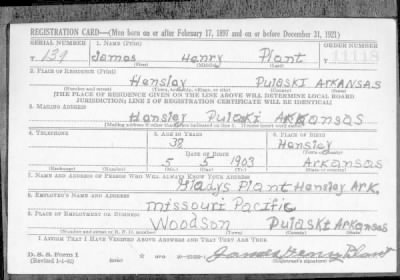 REGISTRATION CARD—(Men born on or after February 17, 1897 and on or before December 31, 1921)
SERIAL NUMBER 1. NAME (Print) ORDER NUMBER
T 139 James Henry Plant 11118
(First) (Middle) (Last)
2. PLACE OF RESIDENCE (Print)
Hensley Pulaski ARKANSAS
(Number and street) (Town, township, village, or city) (County) (State)
[THE PLACE OF RESIDENCE GIVEN ON THE LINE ABOVE WILL DETERMINE LOCAL BOARD
JURISDICTION; LINE 2 OF REGISTRATION CERTIFICATE WILL BE IDENTICAL]
3. MAILING ADDRESS
Hensley Pulaski ARKANSAS
[Mailing address if other than place indicated on line 2. If same insert word same]
4. TELEPHONE 5. AGE IN YEARS 6. PLACE OF BIRTH
38 Hensley
DATE OF BIRTH (Town or county)
5 5 1903 Arkansas
(Exchange) (Number) (Mo.) (Day) (Yr.) (State or country)
7. NAME AND ADDRESS OF PERSON WHO WILL ALWAYS KNOW YOUR ADDRESS
Gladys Plant Hensley Ark.
8. EMPLOYER'S NAME AND ADDRESS
Missouri Pacific
9. PLACE OF EMPLOYMENT OR BUSINESS
Woodson Pulaski Arkansas
(Number and street or R. F. D. number) (Town) (County) (State)
I AFFIRM THAT I HAVE VERIFIED ABOVE ANSWERS AND THAT THEY ARE TRUE.
D. S. S. Form 1
(Revised 1-1-42) (over) James Henry Plant
(Registrant's signature)